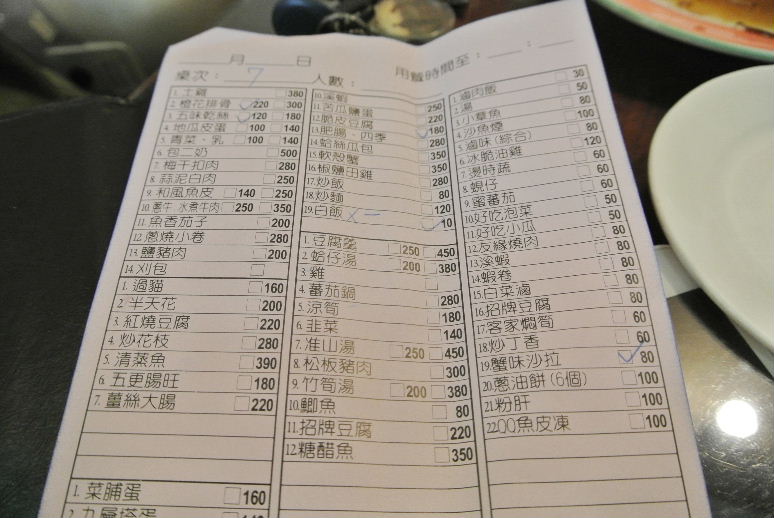 月 日
桌次: 7 人數: 用餐時間至: :
1. 土雞 380
2. 橙花排骨 220 300
3. 五味乾絲 120 180
4. 地瓜皮蛋 100 140
5. 青菜、乳 100 140
6. 包二奶 500
7. 梅干扣肉 280
8. 蒜泥白肉 250
9. 和風魚皮 140 250
10. 蔥牛 水煮牛肉 250 350
11. 魚香茄子 200
12. 蔥燒小卷 280
13. 鹽豬肉 200
14. 刈包
1. 過貓 160
2. 半天花 200
3. 紅燒豆腐 220
4. 炒花枝 280
5. 清蒸魚 390
6. 五更腸旺 180
7. 薑絲大腸 220
1. 菜脯蛋 160
2. 九層塔蛋
10. 溪蝦 250
11. 苦瓜鹽蛋 280
12. 脆皮豆腐 180
13. 肥腸、四季 280
14. 蛤絲瓜包 350
15. 軟殼蟹 350
16. 椒鹽田雞 280
17. 炒飯 80
18. 炒麵 120
19. 白飯 10
1. 豆腐羹 250 450
2. 蛤仔湯 200 380
3. 雞
4. 蕃茄鍋 280
5. 涼筍 180
6. 韭菜 140
7. 淮山湯 250 450
8. 松板豬肉 300
9. 竹筍湯 200 380
10. 鯽魚 80
11. 招牌豆腐 220
12. 糖醋魚 350
1. 滷肉飯 30
2. 湯 50
3. 小章魚 100
4. 沙魚煙 80
5. 滷味(綜合) 120
6. 冰脆油雞 60
7. 燙時蔬 60
8. 蜆仔 60
9. 蜜蕃茄 50
10. 好吃泡菜 50
11. 好吃小瓜 80
12. 友緣燒肉 80
13. 溪蝦 80
14. 蝦卷 80
15. 白菜滷 80
16. 招牌豆腐 60
17. 客家燜筍 60
18. 炒丁香 60
19. 蟹味沙拉 80
20. 蔥油餅(6個) 100
21. 粉肝 100
22. OO魚皮凍 100